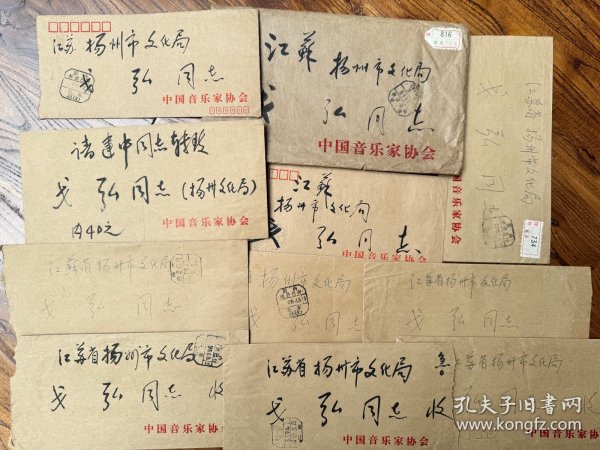 江苏 扬州市文化局
戈 弘 同志
中国音乐家协会
江苏 扬州市文化局
戈 弘 同志
中国音乐家协会
816
江苏省扬州市文化局
戈 弘 同志
734
诸建中同志转致
戈 弘 同志 (扬州文化局)
内40元
中国音乐家协会
江苏
扬州市文化局
戈 弘 同志
中国音乐家协会
江苏省扬州市文化局
戈 弘 同志
江苏省扬州市文化局
戈 弘
江苏省扬州市文化局
戈 弘 同志
江苏省扬州市文化局
戈 弘 同志 收
中国音乐家协会
江苏省扬州市文化局
戈 弘 同志 收
中国音乐家协会
急
江苏省扬州市文化局
孔夫子旧书网
www.kongfz.com